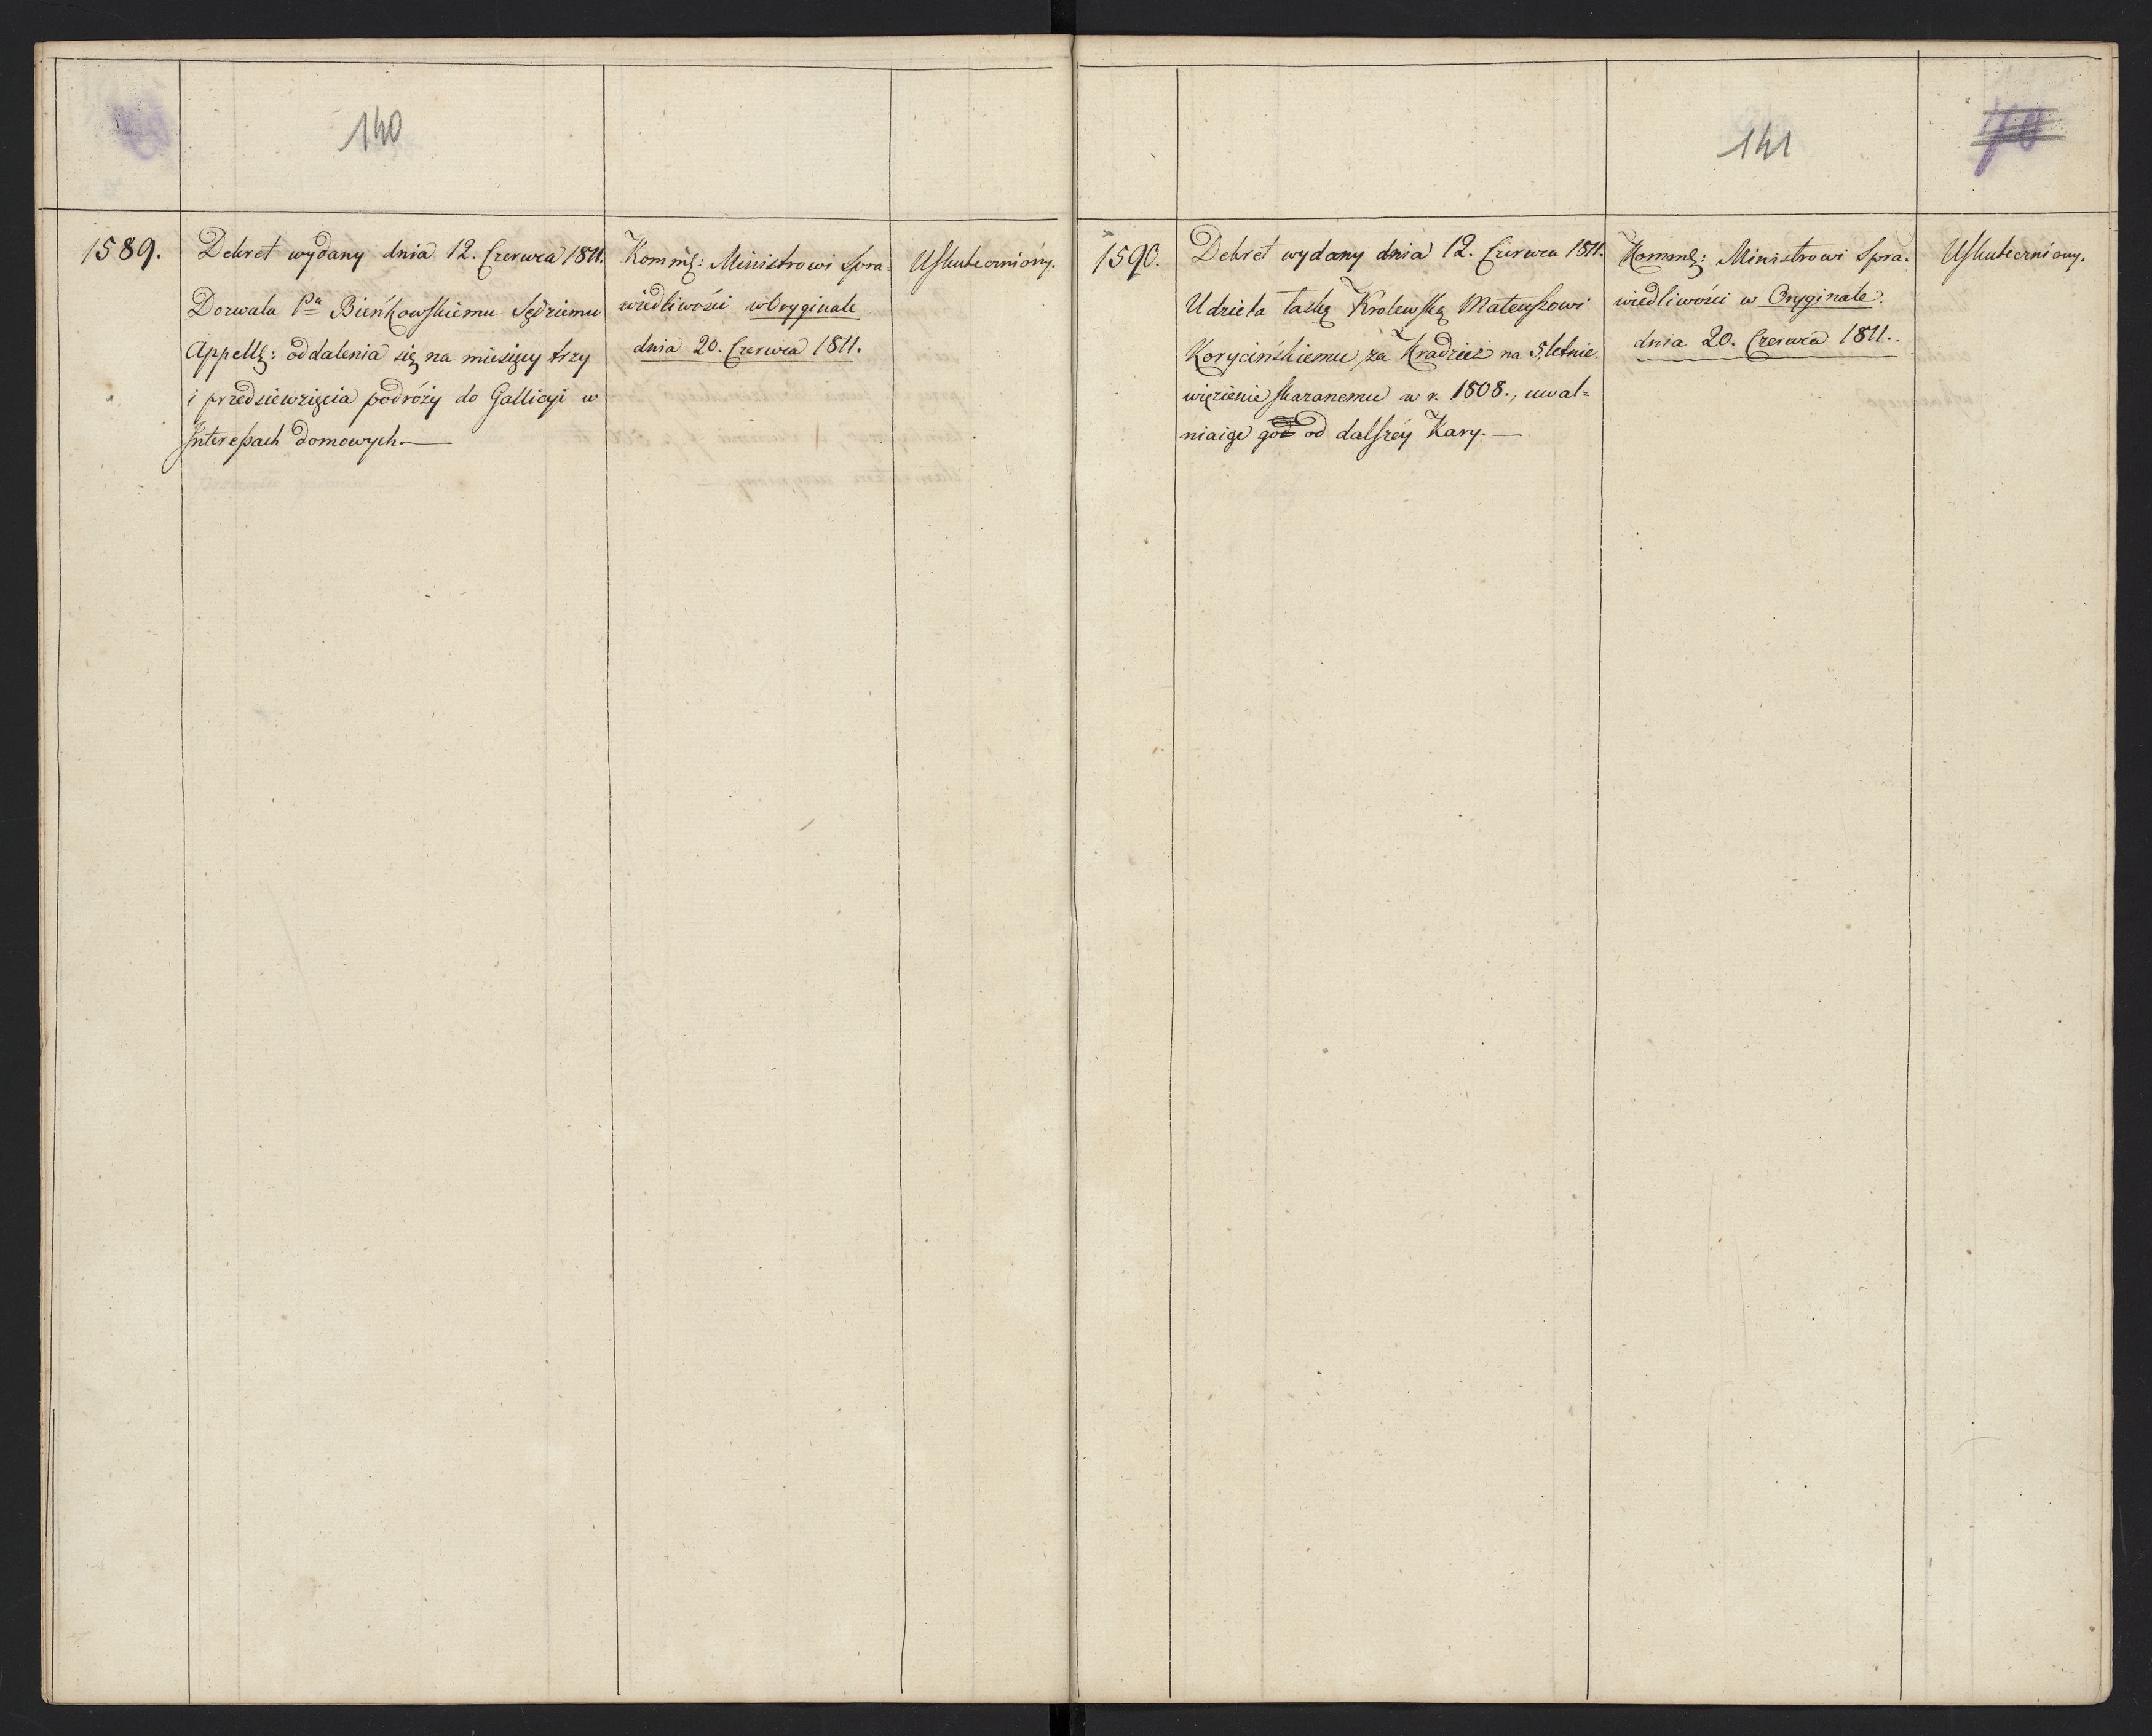 140
1589.
Dekret wydany dnia 12. Czerwca 1811.
Dozwala Pu Bieńkowskiemu Sędziemu
Appellę: oddalenia się na miesięcy trzy
i przedsiewzięcia podróży do Gallicyi w
Interessach domowych.—
Kommę: Ministrowi Spra-
wiedliwości w Oryginale
dnia 20. Czerwca 1811.
Uskuteczniony.
141
70
1590.
Dekret wydany dnia 12. Czerwca 1811.
Udziela łaskę Krolewską Mateuszowi
Korycińskiemu za Kradzież na 5letnie
więzienie skazanemu w r. 1808., uwal=
niaiąc go od dalszéy Kary.—
Kommę: Ministrowi Spra-
wiedliwości w Oryginale.
dnia 20. Czerwca 1811..
Uskuteczniony.